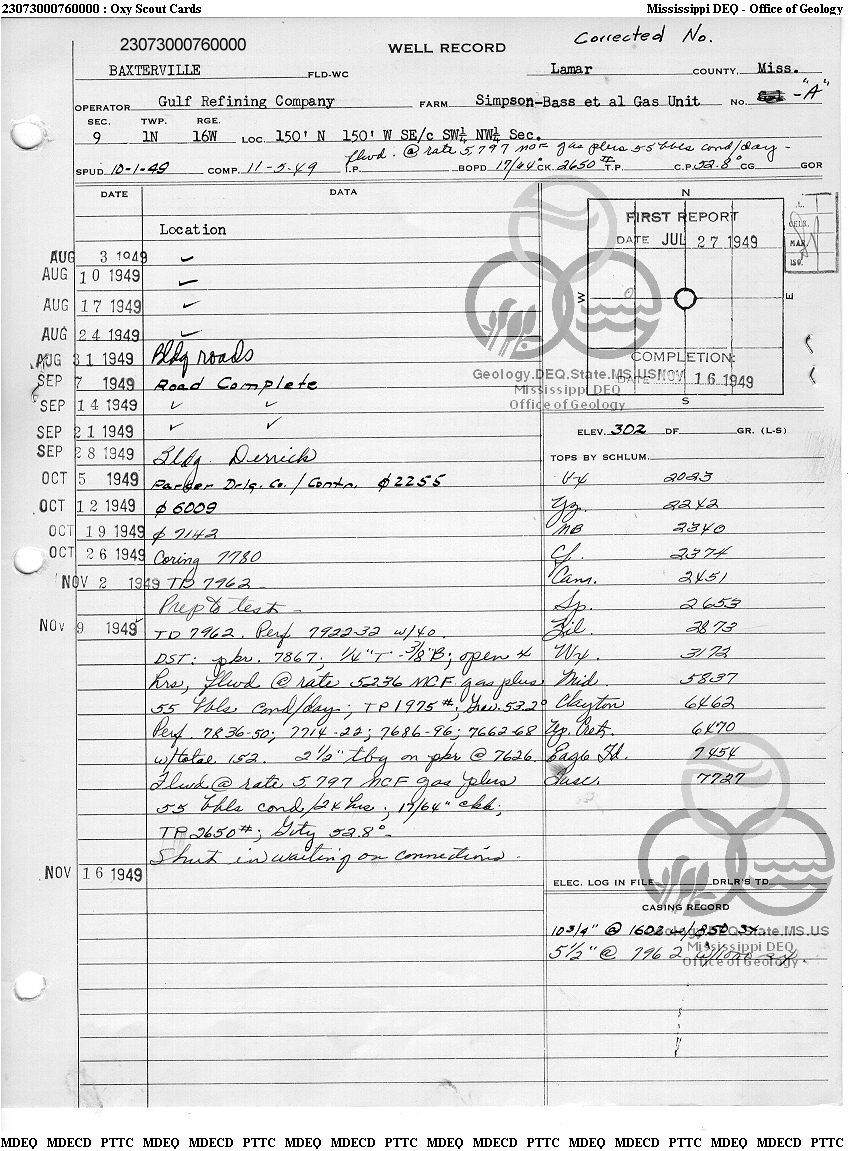 23073000760000 : Oxy Scout Cards Mississippi DEQ - Office of Geology
23073000760000 WELL RECORD Corrected No.
BAXTERVILLE FLD-WC Lamar COUNTY, Miss.
OPERATOR Gulf Refining Company FARM Simpson-Bass et al Gas Unit No. -"A"
SEC. TWP. RGE.
9 1N 16W LOC. 150' N 150' W SE/c SW¼ NW¼ Sec.
flwd. @ rate 5,797 MCF gas plus 55 bbls cond/day -
SPUD 10-1-49 COMP. 11-5-49 I.P. BOPD 17/64" CK. 2650# T.P. C.P. 52.8° CG GOR
DATE DATA
Location
AUG 3 1949 ✓
AUG 10 1949 ✓
AUG 17 1949 ✓
AUG 24 1949 ✓
AUG 31 1949 Bldg roads
SEP 7 1949 Road Complete
SEP 14 1949 ✓ ✓
SEP 21 1949 ✓ ✓
SEP 28 1949 Bldg. Derrick
OCT 5 1949 Parker Drlg. Co./Contr. ϕ2255
OCT 12 1949 ϕ 6009
OCT 19 1949 ϕ 7142
OCT 26 1949 Coring 7780
NOV 2 1949 TD 7962
Prep to test -
NOV 9 1949 TD 7962. Perf 7922-32 w/40.
DST: pkr. 7867; ¼"T - 3/8"B; open 4
hrs, flwd @ rate 5236 MCF gas plus
55 bbls cond/day; TP 1975#; Grav. 53.2°
Perf. 7836-50; 7714-22; 7686-96; 7662-68
w/total 152. 2½" tbg on pkr @ 7626.
Flwd @ rate 5797 MCF gas plus
55 bbls cond/24 hrs; 17/64" chk;
TP 2650#; Gvty 52.8° -
Shut in waiting on connections.
NOV 16 1949
N
FIRST REPORT
DATE JUL 27 1949
W E
COMPLETION:
DATE NOV 16 1949
S
MAR
ISO.
Geology.DEQ.State.MS.US
Mississippi DEQ
Office of Geology
ELEV. 302 DF GR. (L-S)
TOPS BY SCHLUM.
Vx 2023
Yz. 2242
MB 2340
Cf. 2374
Cam. 2451
Sp. 2653
Zil. 2873
Wx. 3172
Mid. 5837
Clayton 6462
Up. Cretz. 6470
Eagle Fd. 7454
Tusc. 7727
ELEC. LOG IN FILE DRLR'S TD
CASING RECORD
10 3/4" @ 1602 w/ 850 sx
5½" @ 7962 w/1000 sx.
Geology.DEQ.State.MS.US
Mississippi DEQ
Office of Geology
MDEQ MDECD PTTC MDEQ MDECD PTTC MDEQ MDECD PTTC MDEQ MDECD PTTC MDEQ MDECD PTTC MDEQ MDECD PTTC